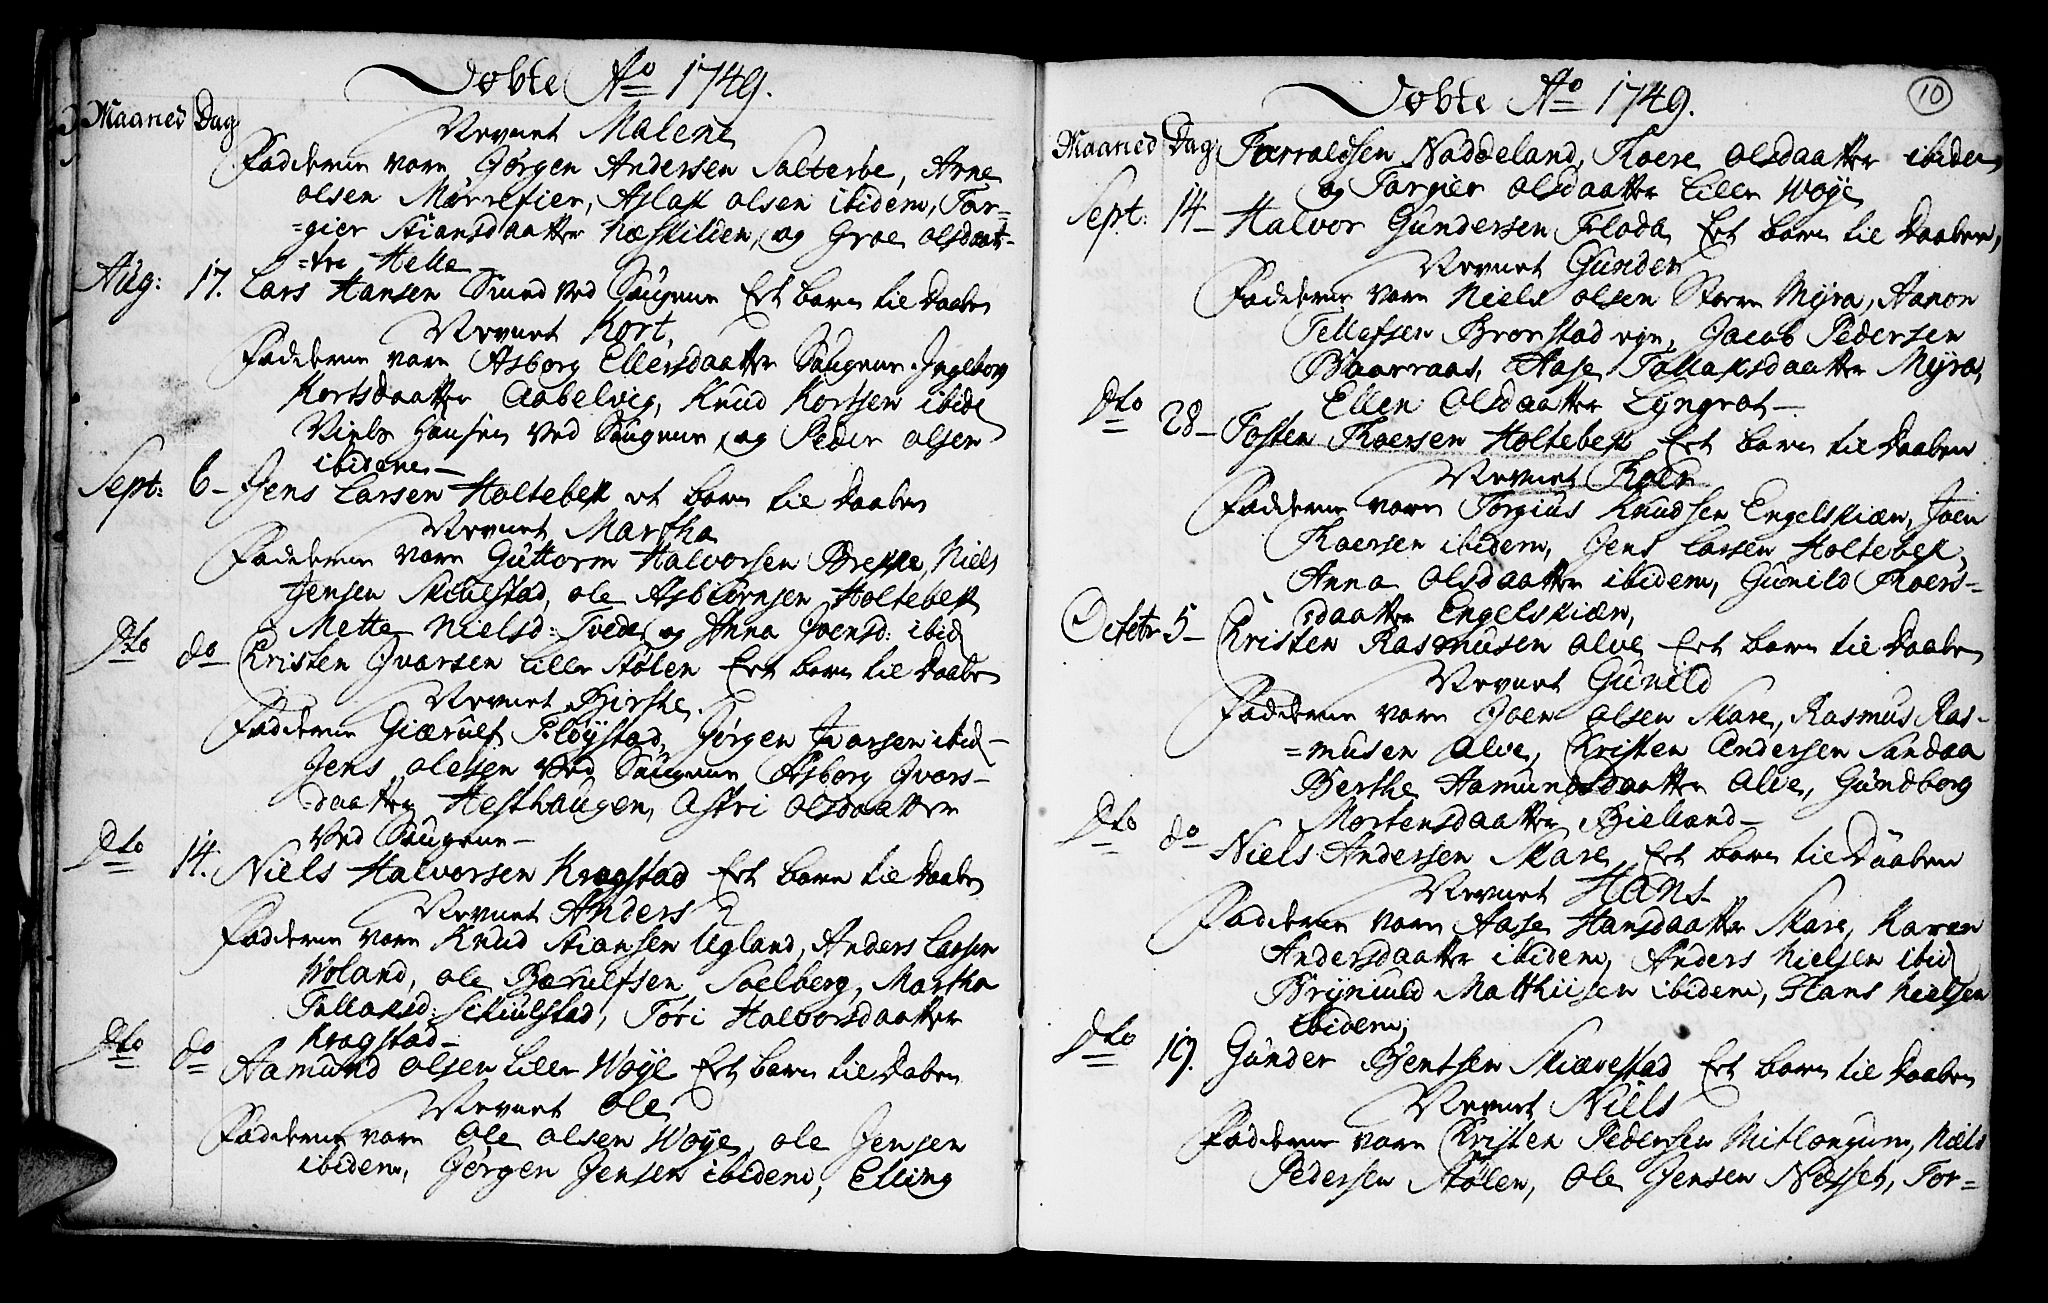 Døbte Ao 1749.
Maaned Dag
Nevnet Malene
Fadderne vare Jørgen Andersen Salterbe, Arne
olsen Mørrefier, Aslak olsen ibidem, Tor=
=gier Stiansdaatter Næskilden, og Groe olsdaat=
=ter Helle
Aug: 17. Lars Hansen Smed ved Saugene Et barn til daaben
Nevnet Kort,
Fadderne vare Asborg Ellersdaatter Saugene. Ingeborg
Kortsdaatter Aabelvig, Knud Kortsen ibid
Niels Hansen ved Saugene, og Peder olsen
ibidem—
Sept: 6— Jens Larsen Holtebek et barn til daaben
Nevnet Martha
Fadderne vare Guttorm Halvorsen Brekke, Niels
Jensen Skiulstad, ole Asbiørnsen Holtebek
Mette Nielsd: Tvede, og Anna Joensd: ibid
Dto do— Kristen Ivarsen Lille Stølen Eet barn til daaben
Nevnet Birthe.
Fadderne Giærulf Fløystad, Jørgen Ivarsen ibid—
Jens olesen ved Saugene Asborg Ivars—
daatter Hesthaugen, Astri olsdaatter
ved Saugene—
Dto 14. Niels Halvorsen Kragstad Eet barn til daaben
Nevnet Anders
Fadderne vare Knud Stiansen Ugland, Anders Larsen
Woland, ole Bærulfsen Soelberg, Martha
Tallaksd: Skiulstad, Tori Halvorsdaatter
Kragstad—
Dto do Aamund olsen Lille Woje Eet barn til daben
Nevnet Ole
Fadderne vare Ole olsen Woje, ole Jensen
ibidem, Jørgen Jensen ibidem, Elling
Døbte Ao 1749.
10
Maaned Dag Torroldsen Naddeland, Thoere olsdaatter ibidem
og Torgier olsdaatter Lille Woje
Sept: 14— Halvor Gundersen Floda Eet barn til daaben,
Nevnet Gunder
Fadderne vare Niels olsen Store Myra, Aanon
Tellefsen Brorstad eje, Jacob Pedersen
Blaarraas, Aase Tallaksdaatter Myra,
Ellen Olsdaatter Lyngrot—
Dto 28— Tosten Thoersen Holtebek Eet barn til daaben
Nevnet Thoer
Fadderne vare Torgius Knudsen Engelskiæn, Joen
Thoersen ibidem, Jens Larsen Holtebek,
Anna Olsdaatter ibidem, Gunild Thoers—
daatter Engelskiæn,
Octobr 5— Kristen Rasmusen Alve Eet barn til daaben
Nevnet Gunild
Fadderne vare Joen olsen Mare, Rasmus Ras—
=musen Alve, Kristen Andersen Sandaa
Berthe Aamundsdaatter Alve, Gundborg
Mortensdaatter Bielland—
Dto do Niels Andersen Mare Eet barn til Daaben
Nevnet Hans—
Fadderne vare Aase Hansdaatter Mare, Karen
Andersdaatter ibidem, Anders Nielsen ibid
Brynuld Matthiisen ibidem, Hans Nielsen
ibidem,
Dto 19. Gunder Bentsen Skiærestad Eet barn til daaben
Nevnet Niels
Fadderne vare Kristen Pedersen Mitlongum, Niels
Pedersen Stølen, Ole Jensen Næsset, Tor=